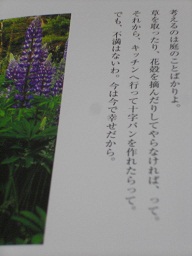 考えるのは庭のことばかりよ。
草を取ったり、花殻を摘んだりしてやらなければ、って。
それから、キッチンへ行って十字パンを作れたらって。
でも、不満はないわ。今は今で幸せだから。